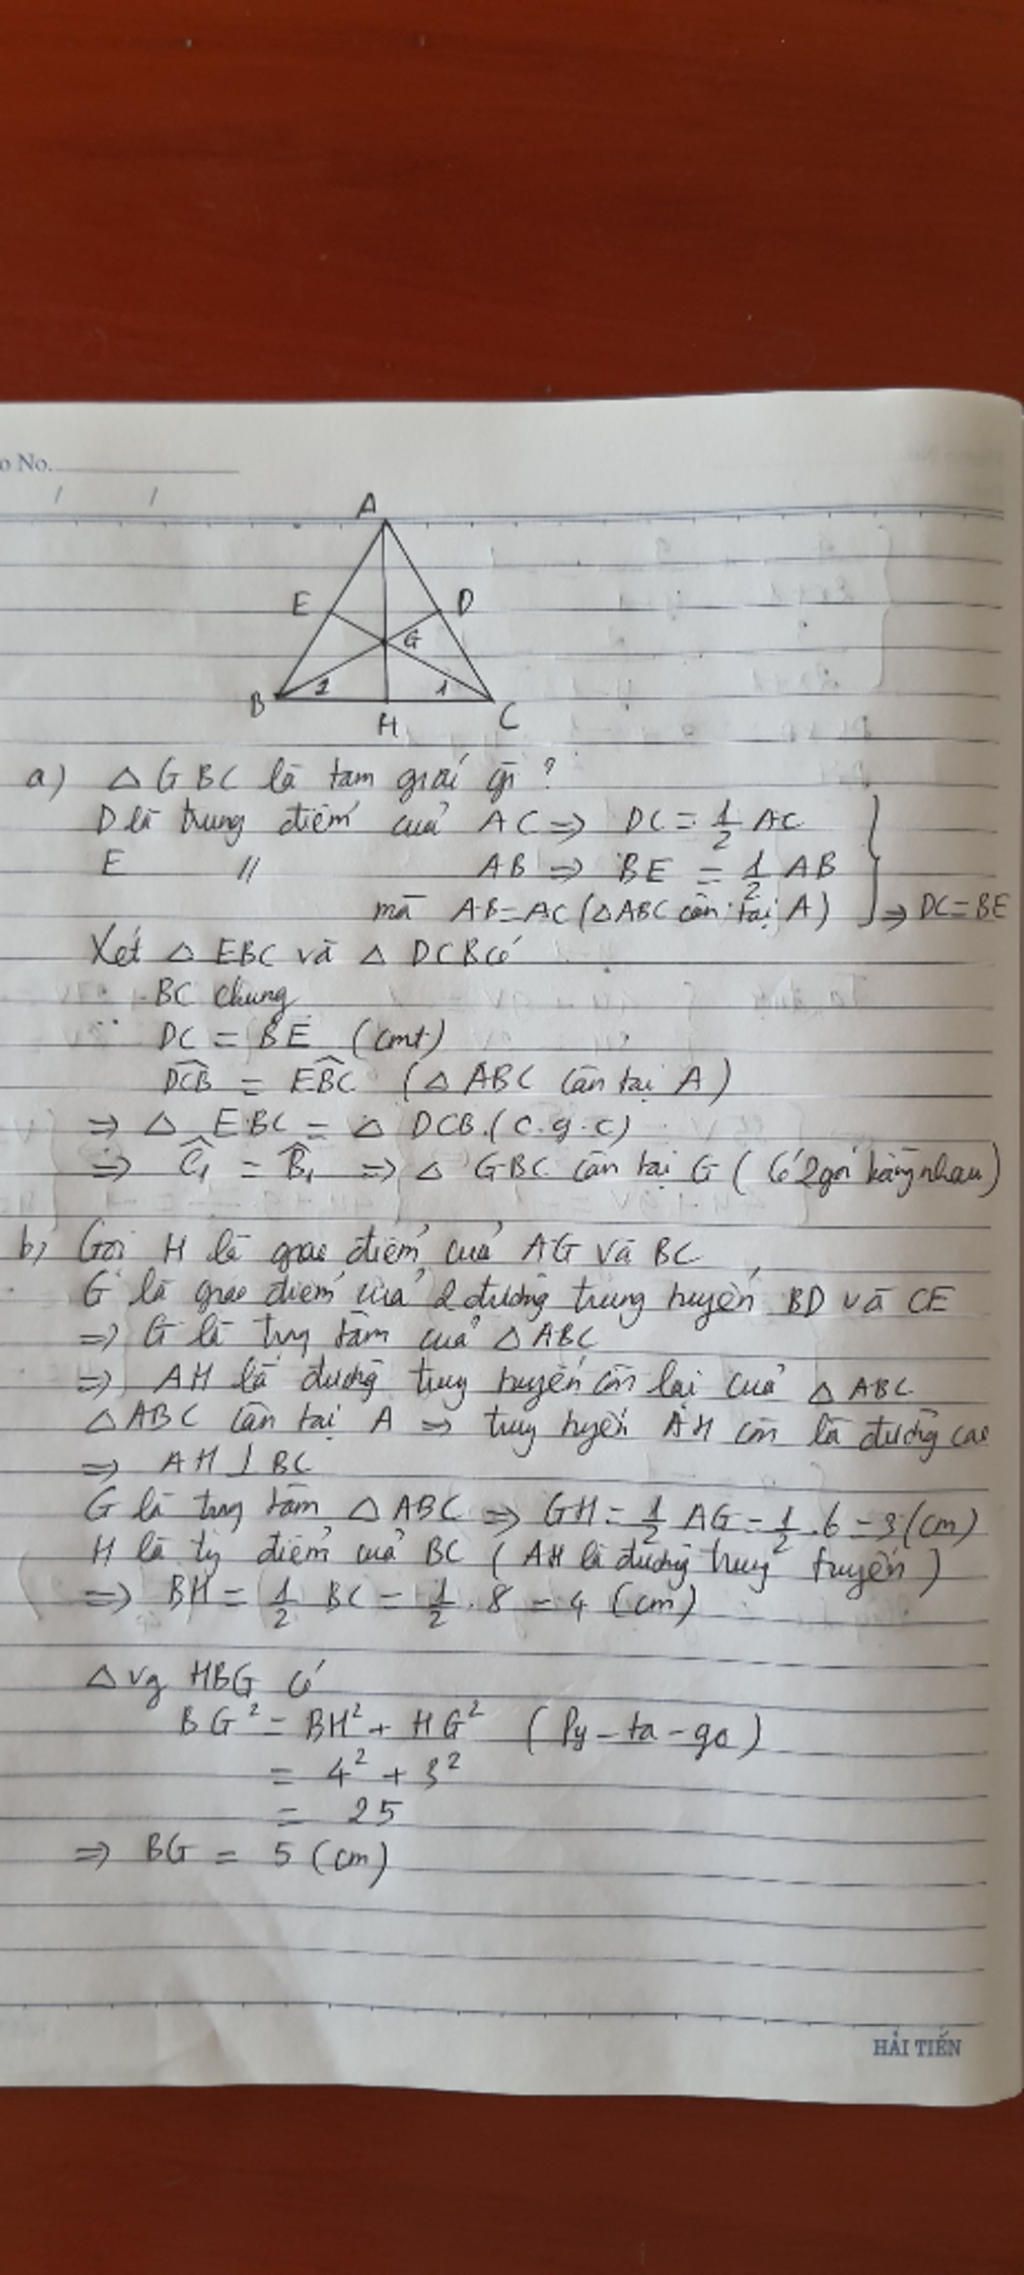 o No.
A
E D
G
1 1
B H C
a) △ GBC là tam giác gì ?
D là trung điểm của AC ⇒ DC = 1/2 AC
E // AB ⇒ BE = 1/2 AB
mà AB = AC (△ABC cân tại A) } ⇒ DC = BE
Xét △ EBC và △ DCB có
BC chung
DC = BE (cmt)
DCB^ = EBC^ (△ ABC cân tại A)
⇒ △ EBC = △ DCB (c.g.c)
⇒ C1^ = B1^ ⇒ △ GBC cân tại G ( có 2 góc bằng nhau)
b) Gọi H là giao điểm của AG và BC
G là giao điểm của 2 đường trung tuyến BD và CE
⇒ G là trg tâm của △ ABC
⇒ AH là đường trung tuyến còn lại của △ ABC
△ABC cân tại A ⇒ trung tuyến AH còn là đường cao
⇒ AH ⊥ BC
G là trg tâm △ ABC ⇒ GH = 1/2 AG = 1/2 . 6 = 3 (cm)
H là điểm của BC ( AH là đường trung tuyến )
⇒ BH = 1/2 BC = 1/2 . 8 = 4 (cm)
△ vg HBG có
BG² = BH² + HG² ( Py - ta - go )
= 4² + 3²
= 25
⇒ BG = 5 (cm)
HẢI TIẾN